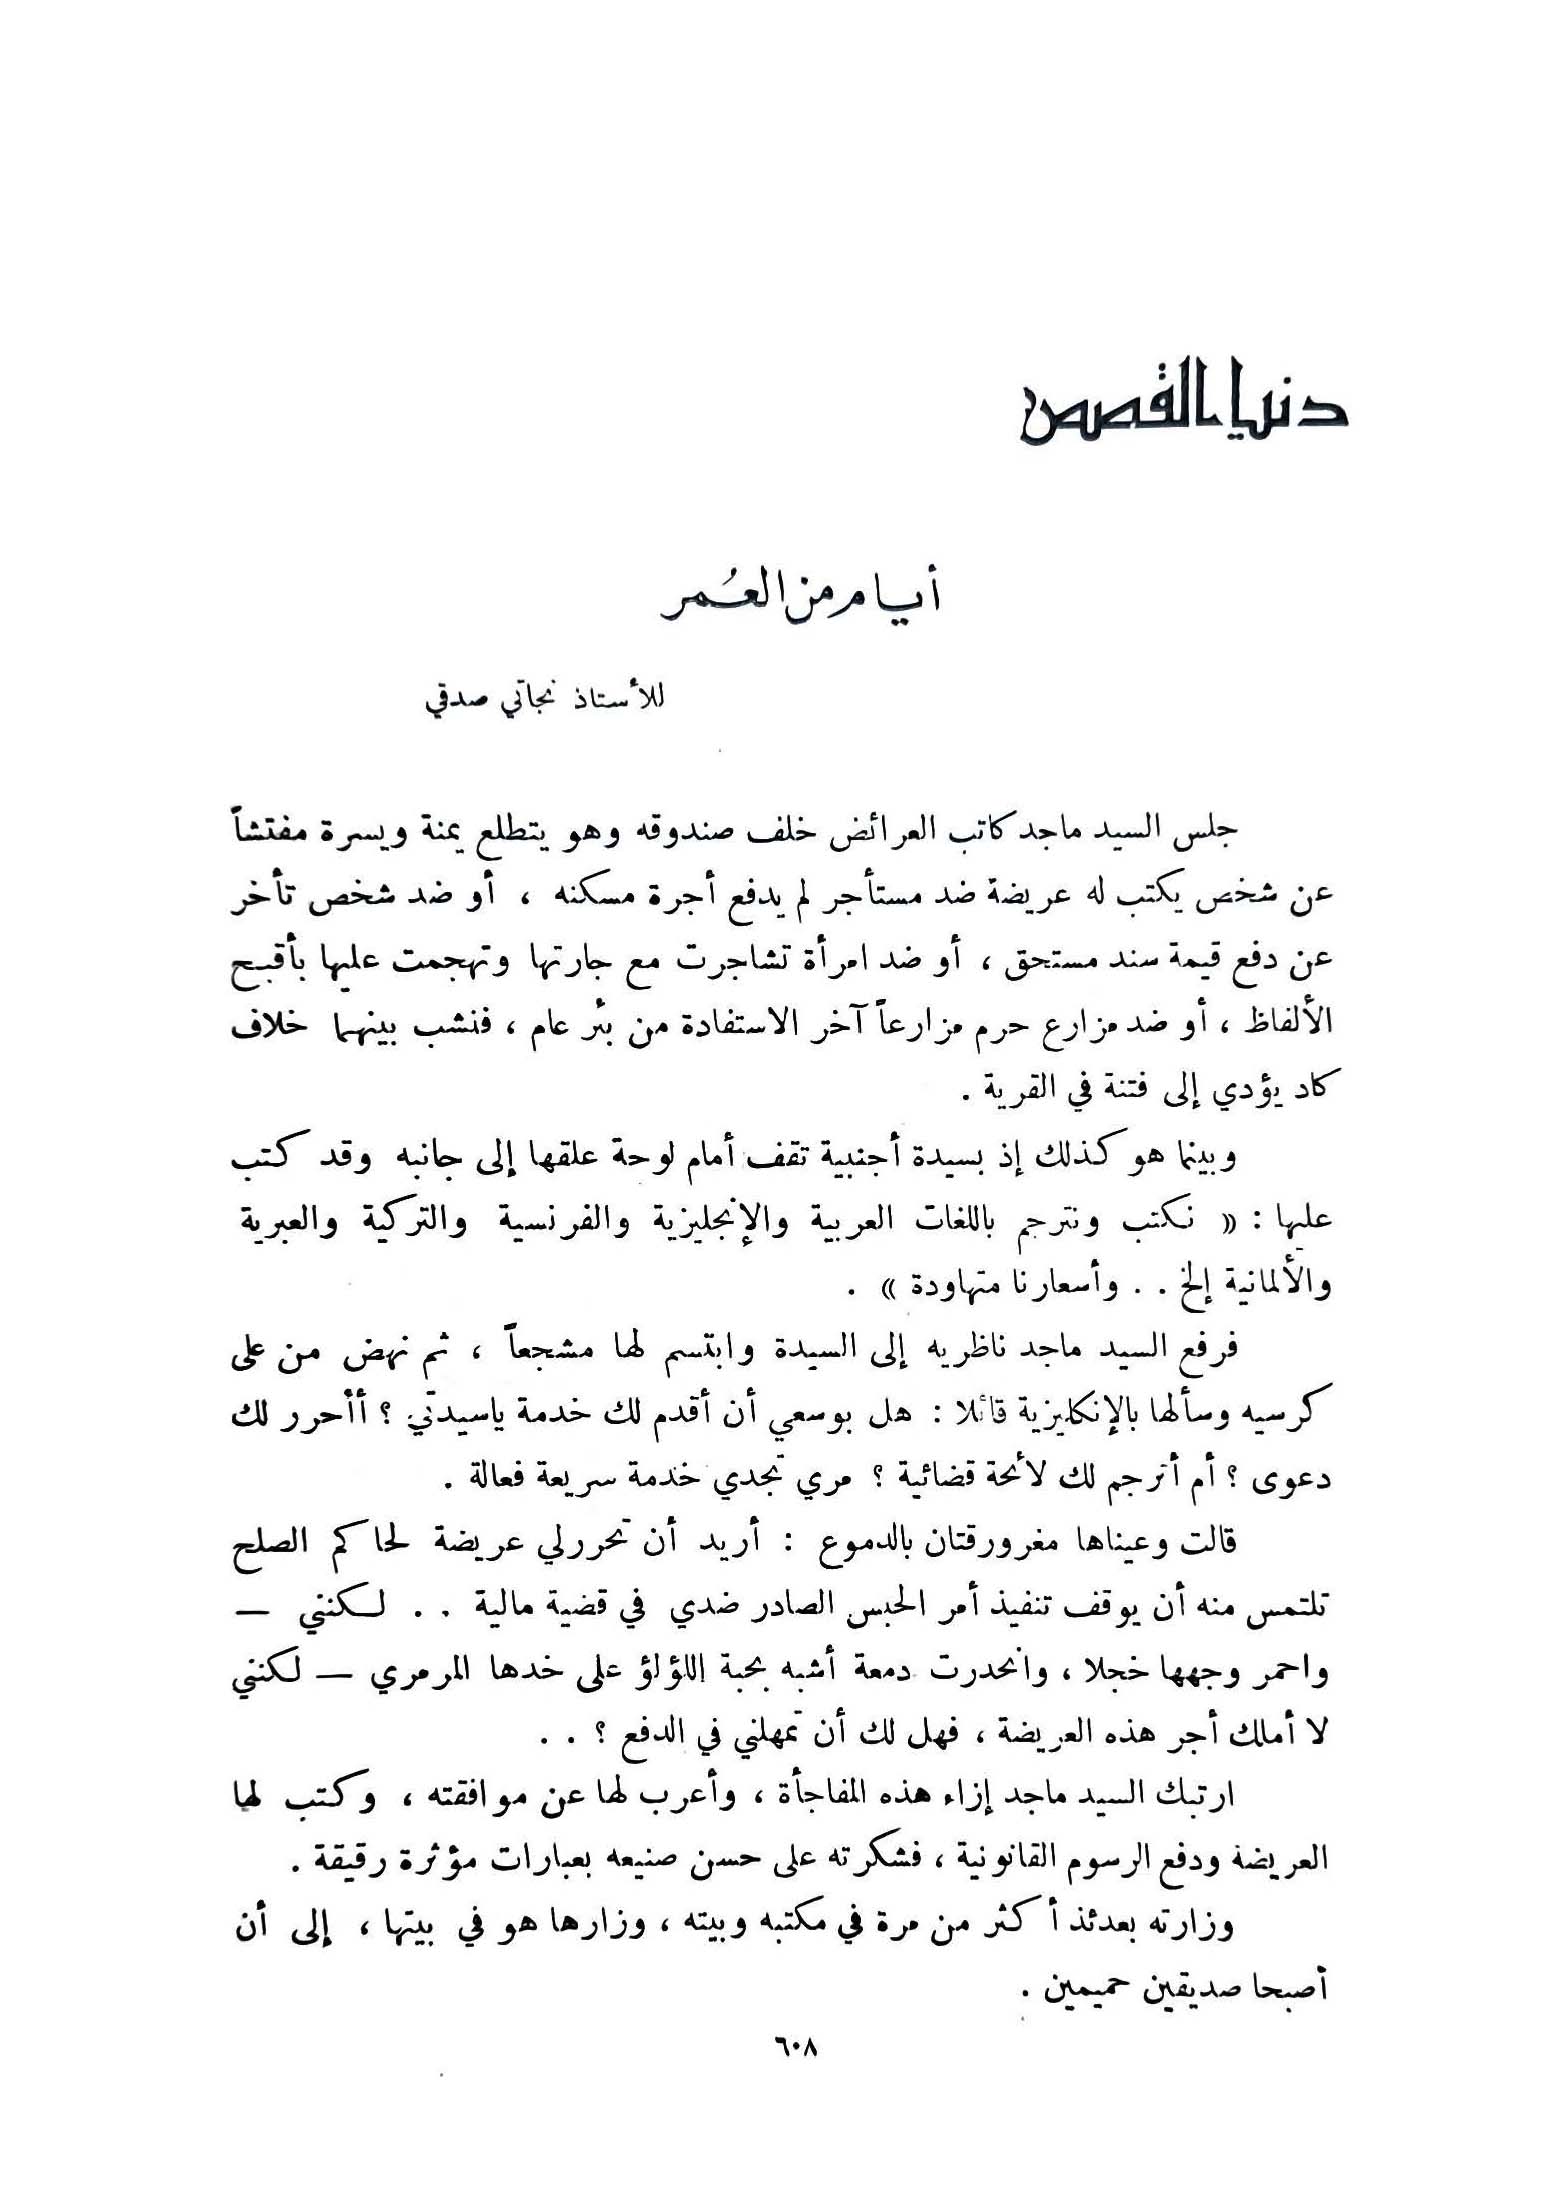 دنيا القصص
أيام من العُمر
للأستاذ نجاتي صدقي
جلس السيد ماجد كاتب العرائض خلف صندوقه وهو يتطلع يمنة ويسرة مفتشاً
عن شخص يكتب له عريضة ضد مستأجر لم يدفع أجرة مسكنه ، أو ضد شخص تأخر
عن دفع قيمة سند مستحق ، أو ضد امرأة تشاجرت مع جارتها وتهجمت عليها بأقبح
الألفاظ ، أو ضد مزارع حرم مزارعاً آخر الاستفادة من بئر عام ، فنشب بينهما خلاف
كاد يؤدي إلى فتنة في القرية .
وبينما هو كذلك إذ بسيدة أجنبية تقف أمام لوحة علقها إلى جانبه وقد كتب
عليها : « نكتب ونترجم باللغات العربية والإنجليزية والفرنسية والتركية والعبرية
والألمانية إلخ . . وأسعارنا متهاودة » .
فرفع السيد ماجد ناظريه إلى السيدة وابتسم لها مشجعاً ، ثم نهض من على
كرسيه وسألها بالإنكليزية قائلا : هل بوسعي أن أقدم لك خدمة ياسيدتي ؟ أأحرر لك
دعوى ؟ أم أترجم لك لائحة قضائية ؟ مري تجدي خدمة سريعة فعالة .
قالت وعيناها مغرورقتان بالدموع : أريد أن تحررلي عريضة لحاكم الصلح
تلتمس منه أن يوقف تنفيذ أمر الحبس الصادر ضدي في قضية مالية . . لكنني —
واحمر وجهها خجلا ، وانحدرت دمعة أشبه بحبة اللؤلؤ على خدها المرمري — لكنني
لا أملك أجر هذه العريضة ، فهل لك أن تمهلني في الدفع ؟ . .
ارتبك السيد ماجد إزاء هذه المفاجأة ، وأعرب لها عن موافقته ، وكتب لها
العريضة ودفع الرسوم القانونية ، فشكرته على حسن صنيعه بعبارات مؤثرة رقيقة .
وزارته بعدئذ أكثر من مرة في مكتبه وبيته ، وزارها هو في بيتها ، إلى أن
أصبحا صديقين حميمين .
٦٠٨